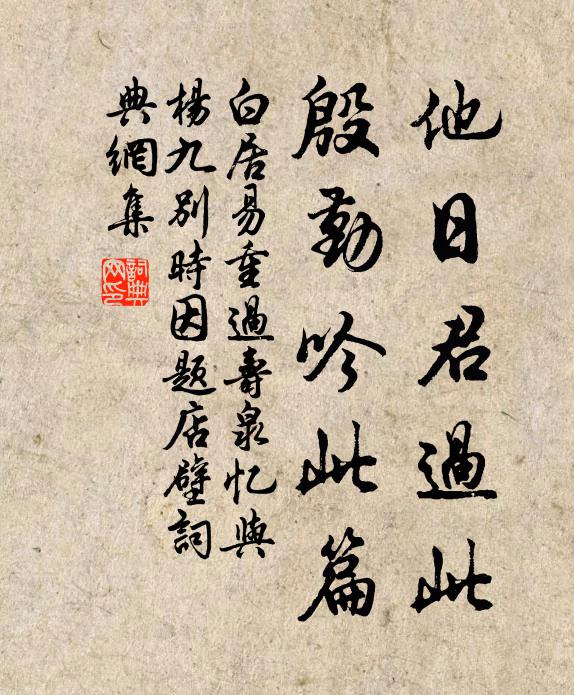 他日君過此
殷勤吟此篇
白居易重過壽泉忆與
楊九別時因題店壁詞
典網集
詞典网印